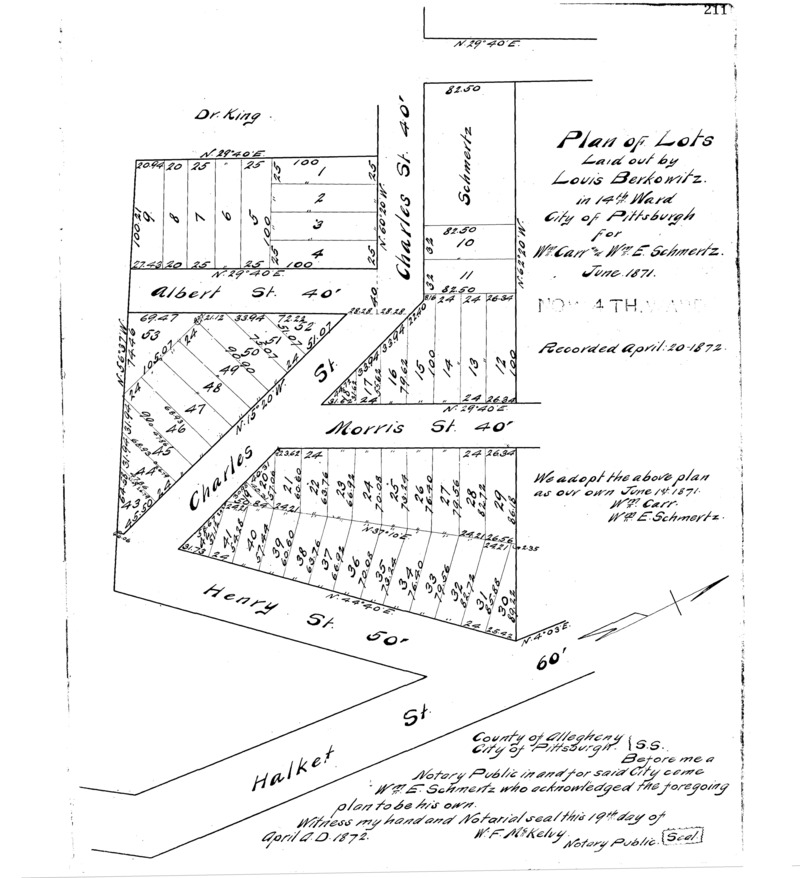 211
N. 29° 40' E.
Dr. King
Plan of Lots
Laid out by
Louis Berkowitz.
in 14th Ward
City of Pittsburgh
for
Wm Carr & Wm E. Schmertz.
June. 1871.
NOW 4TH. WARD
Recorded April. 20-1872.
82.50
Schmertz
82.50
32 10
32 11
82.50
N. 62° 20' W.
Charles St. 40'
N. 60° 20' W.
N. 29° 40' E.
20.94 20 25 " 25
100.21 9 8 7 6 5 100
27.43 20 25 " 25
25 100 25
1
2
3
4
25 100 25
N. 29° 40' E.
Albert St. 40'
40
28.28 28.28 22.40
69.47 21.12 33.94 72.22
53 52
51.07
51
50
49
48
47
46
45
44
43
105.07 24
N. 56° 37' W.
74.46
N. 15° 20' W.
Charles St.
8.16 24 24 26.34
33.94
33.94
17 16 15 14 13 12
79.62 100 100
31.62 24 " " 24 26.34
N. 29° 40' E.
Morris St. 40'
23.62 24 24 26.34
20 21 22 23 24 25 26 27 28 29
57.06 60.60 63.76 66.92 70.08 73.24 76.40 79.56 82.72 86.18
24.21 24.21 26.56
N. 37° 10' E.
24.21 2.35
41 40 39 38 37 36 35 34 33 32 31 30
54.28 57.44 60.60 63.76 66.92 70.08 73.24 76.40 79.56 82.72 85.88 89.22
31.73 24
N. 44° 40' E.
24 25.42
N. 4° 03' E.
Henry St. 50'
60'
Halket St.
We adopt the above plan
as our own June 14. 1871.
Wm Carr.
Wm E. Schmertz.
County of Allegheny
City of Pittsburgh. } S.S.
Before me a
Notary Public in and for said City came
Wm E. Schmertz who acknowledged the foregoing
plan to be his own.
Witness my hand and Notarial seal this 19th day of
April A.D. 1872.
W. F. McKelvy.
Notary Public. Seal